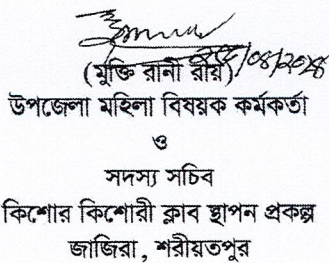 (মুক্তি রানী রায়)
উপজেলা মহিলা বিষয়ক কর্মকর্তা
ও
সদস্য সচিব
কিশোর কিশোরী ক্লাব স্থাপন প্রকল্প
জাজিরা, শরীয়তপুর